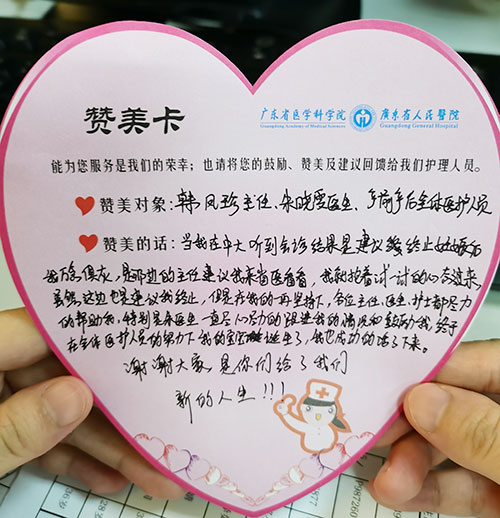 赞美卡
广东省医学科学院
Guangdong Academy of Medical Sciences
廣東省人民醫院
Guangdong General Hospital
能为您服务是我们的荣幸；也请将您的鼓励、赞美及建议回馈给我们护理人员。
赞美对象：韩凤珍主任、宋晓雯医生、产前产后全体医护人员
赞美的话：当我在中大听到会诊结果是建议终止妊娠后
我万念俱灰，是那边的主任建议我来省医看看，我就抱着试一试的心态过来，
虽然这边也是建议我终止，但是在我的再坚持下，各位主任、医生、护士都尽力
的帮助我，特别是宋医生一直尽心尽力的跟进我的情况和鼓励我，终于
在全体医护人员的努力下我的宝宝进生了，我也成功的活了下来。
谢谢大家是你们给了我们
新的人生！！！